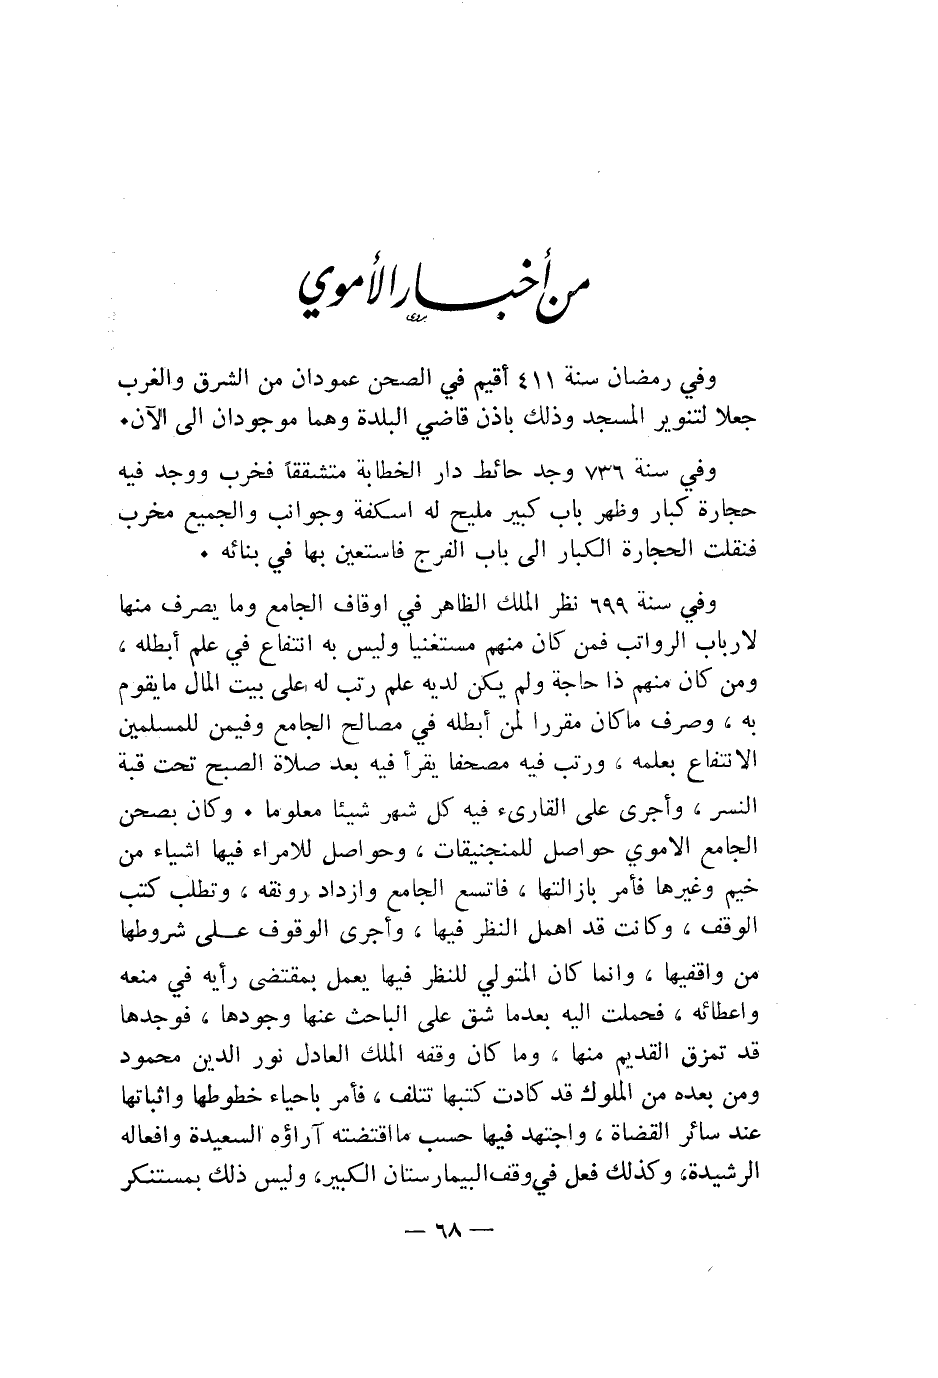 من أخبار الأموي
وفي رمضان سنة ٤١١ أقيم في الصحن عمودان من الشرق والغرب
جعلا لتنوير المسجد وذلك باذن قاضي البلدة وهما موجودان الى الآن٠
وفي سنة ٧٣٦ وجد حائط دار الخطابة متشققاً فخرب ووجد فيه
حجارة كبار وظهر باب كبير مليح له اسكفة وجوانب والجميع مخرب
فنقلت الحجارة الكبار الى باب الفرج فاستعين بها في بنائه ٠
وفي سنة ٦٩٩ نظر الملك الظاهر في اوقاف الجامع وما يصرف منها
لارباب الرواتب فمن كان منهم مستغنيا وليس به انتفاع في علم أبطله ،
ومن كان منهم ذا حاجة ولم يكن لديه علم رتب له على بيت المال مايقوم
به ، وصرف ماكان مقررا لمن أبطله في مصالح الجامع وفيمن للمسلمين
الانتفاع بعلمه ، ورتب فيه مصحفا يقرأ فيه بعد صلاة الصبح تحت قبة
النسر ، وأجرى على القارىء فيه كل شهر شيئا معلوما ٠ وكان بصحن
الجامع الاموي حواصل للمنجنيقات ، وحواصل للامراء فيها اشياء من
خيم وغيرها فأمر بازالتها ، فاتسع الجامع وازداد رونقه ، وتطلب كتب
الوقف ، وكانت قد اهمل النظر فيها ، وأجرى الوقوف عــلى شروطها
من واقفيها ، وانما كان المتولي للنظر فيها يعمل بمقتضى رأيه في منعه
واعطائه ، فحملت اليه بعدما شق على الباحث عنها وجودها ، فوجدها
قد تمزق القديم منها ، وما كان وقفه الملك العادل نور الدين محمود
ومن بعده من الملوك قد كادت كتبها تتلف ، فأمر باحياء خطوطها واثباتها
عند سائر القضاة ، واجتهد فيها حسب مااقتضته آراؤه السعيدة وافعاله
الرشيدة، وكذلك فعل في وقف البيمارستان الكبير، وليس ذلك بمستنكر
— ٦٨ —